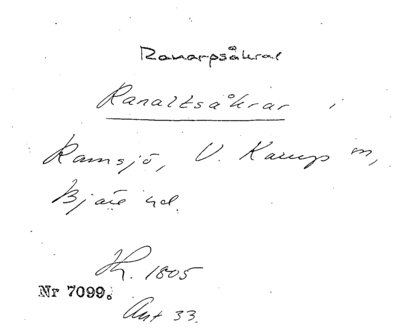 Ranarpsåkral
Ranaltsåkrar i
Ramsjö, V. Karup sn,
Bjäre hd.
Kt. 1805
Nr 7099.
Akt 33.